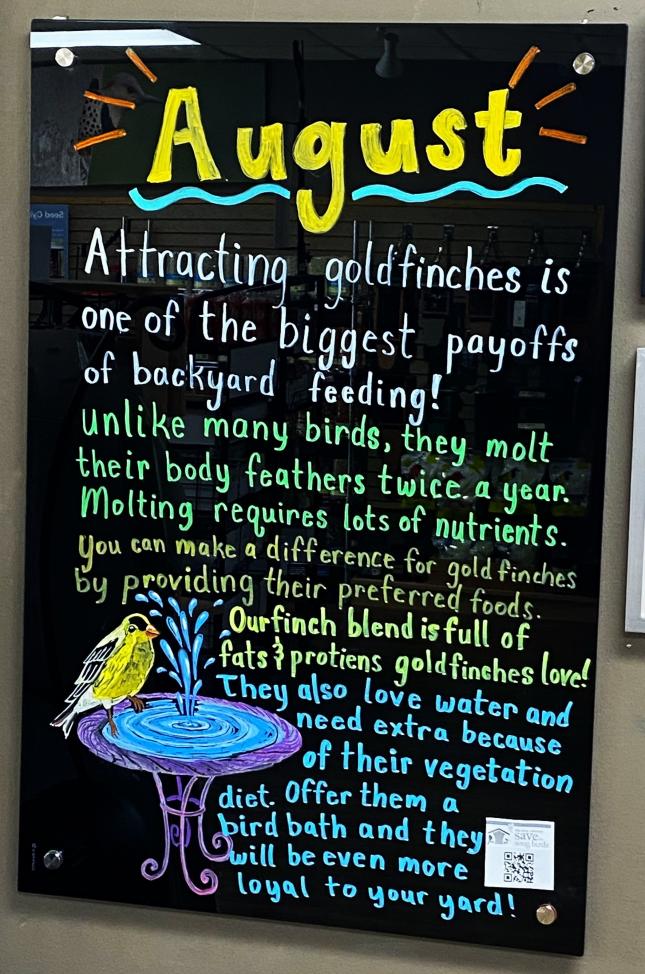 August
Attracting goldfinches is
one of the biggest payoffs
of backyard feeding!
unlike many birds, they molt
their body feathers twice a year.
Molting requires lots of nutrients.
You can make a difference for goldfinches
by providing their preferred foods.
Our finch blend is full of
fats & protiens goldfinches love!
They also love water and
need extra because
of their vegetation
diet. Offer them a
bird bath and they
will be even more
loyal to your yard!
save
song birds